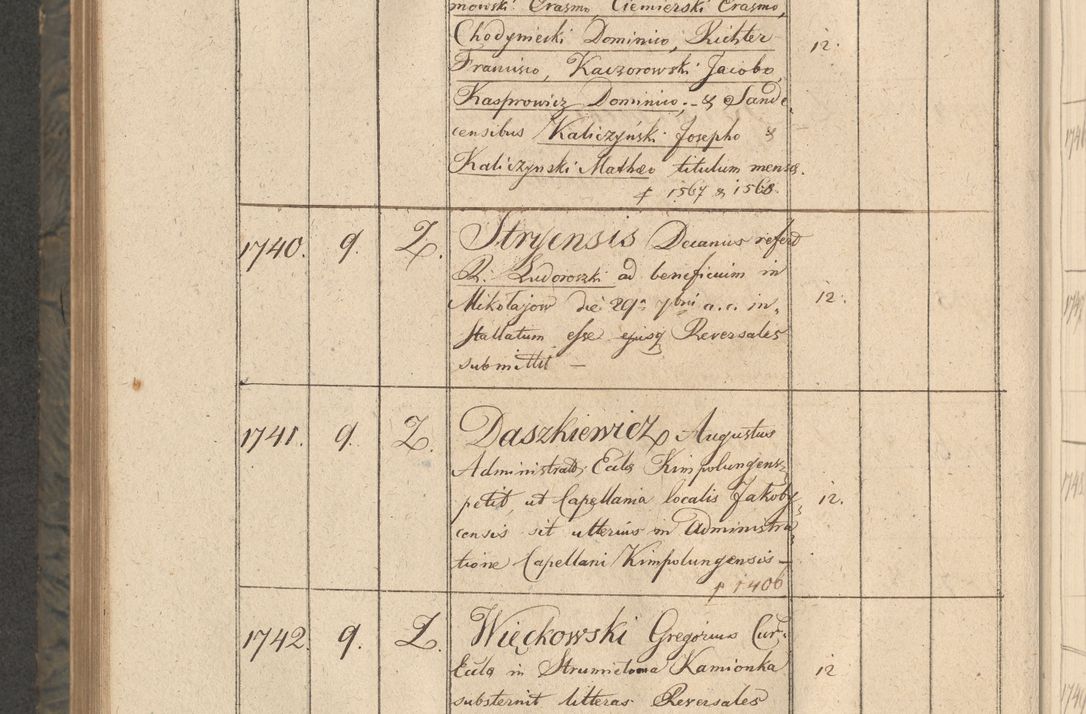 mowski Erasmo Ciemierski Erasmo,
Chodyniecki Dominico, Richter
Francisco, Kaczorowski Jacobo, 12.
Kasprowicz Dominico; - & Sande,
censibus Kaliczyński Josepho &
Kaliczynski Mathæo titulum mensæ.
1567 & 1568.
1740. 9. Z. Stryensis Decanus refert
R. Ludoroszki ad beneficium in
Mikołajow die 29a 7bris a. c. in, 12.
stallatum esse ejusq Reversales
submittit —
1741. 9. Z. Daszkiewicz Augustus
Administrator Eccla Kimpolungens,
petit, ut Capellania localis Jakoby, 12.
censis sit ulterius in Administra
tione Capellani Kimpolungensis —
1406
1742. 9. Z. Więckowski Gregorius Cur.
Eccla in Strumiełowa Kamionka 12
substernit litteras Reversales